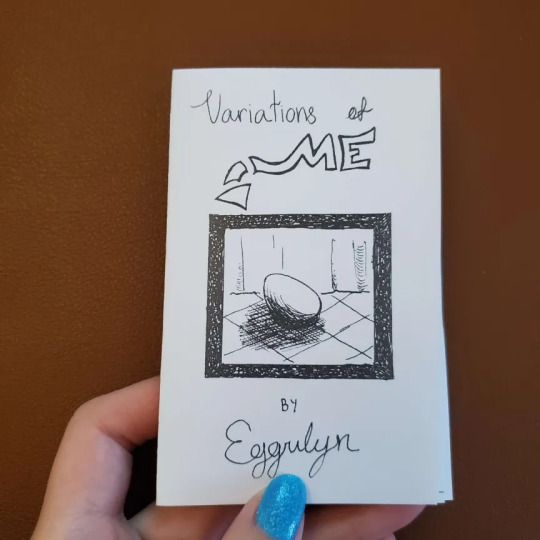 Variations of
ME
BY
Eggrulyn